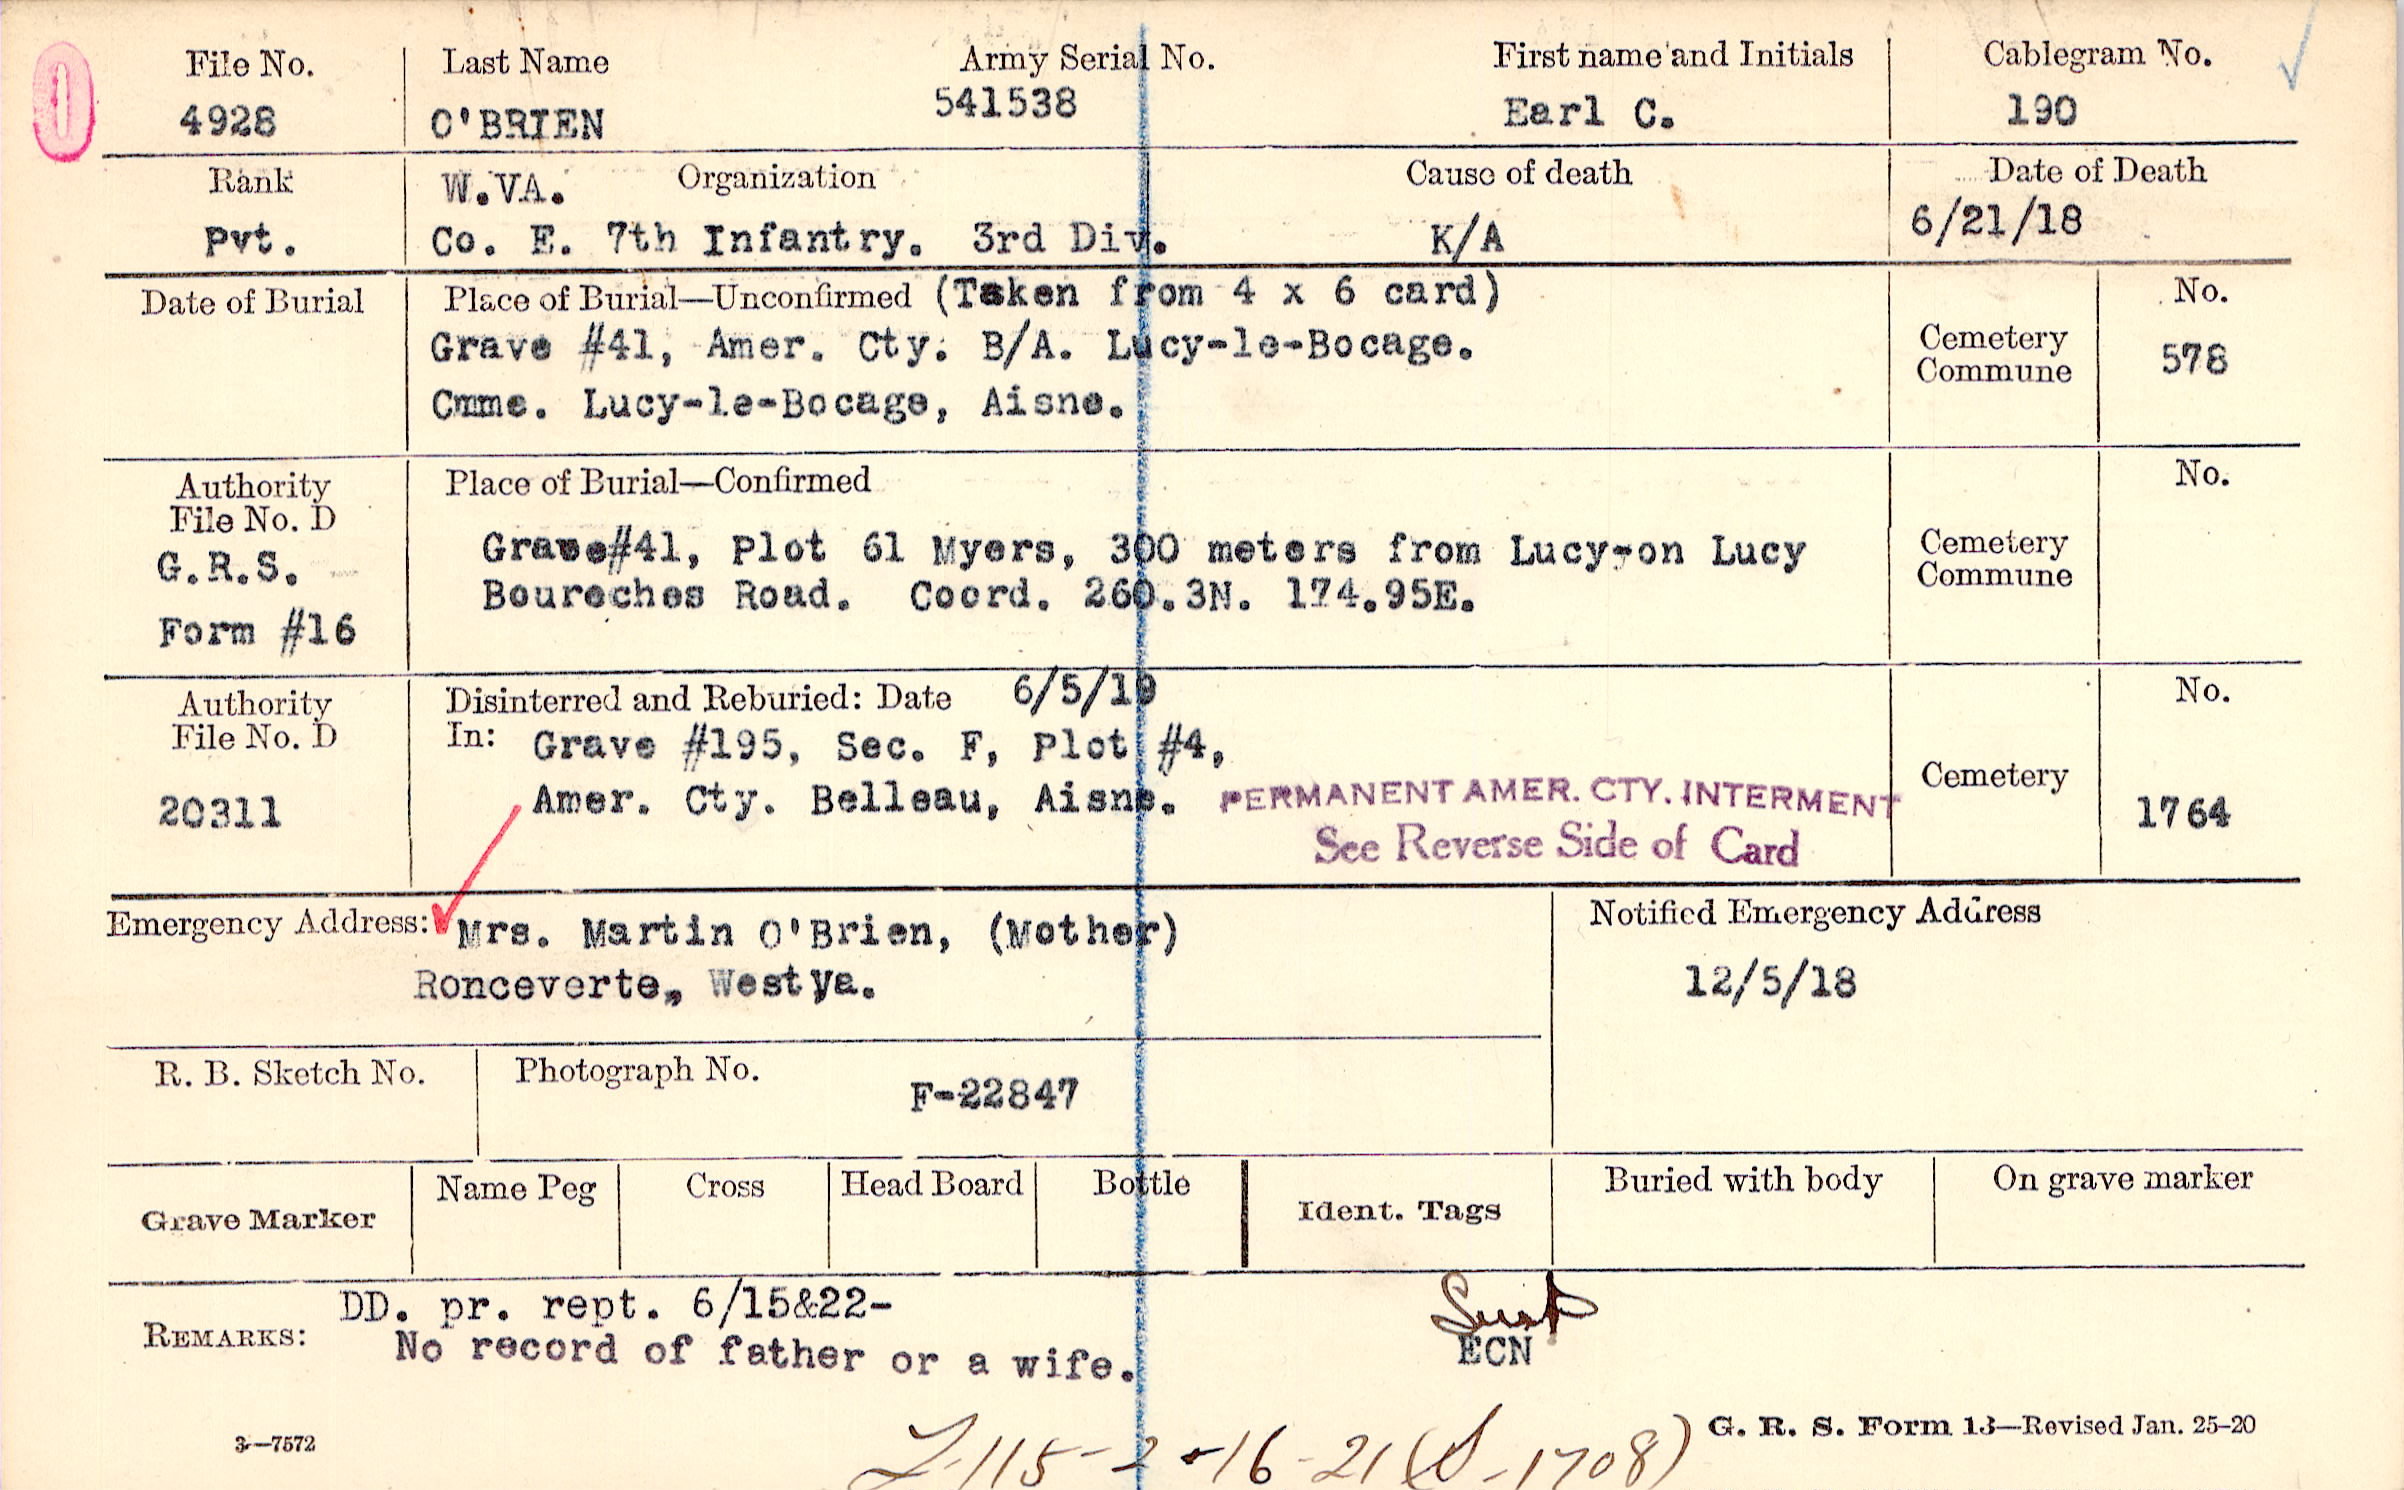 File No. Last Name Army Serial No. First name and Initials Cablegram No.
4928 O'BRIEN 541538 Earl C. 190
Rank W.VA. Organization Cause of death Date of Death
Pvt. Co. E. 7th Infantry. 3rd Div. K/A 6/21/18
Date of Burial Place of Burial—Unconfirmed (Taken from 4 x 6 card) No.
Grave #41, Amer. Cty. B/A. Lucy-le-Bocage. Cemetery
Commune 578
Cmme. Lucy-le-Bocage, Aisne.
Authority Place of Burial—Confirmed No.
File No. D
G.R.S. Grave#41, Plot 61 Myers, 300 meters from Lucy-on Lucy Cemetery
Boureches Road. Coord. 260.3N. 174.95E. Commune
Form #16
Authority Disinterred and Reburied: Date 6/5/19 No.
File No. D In: Grave #195, Sec. F, Plot #4,
20311 Amer. Cty. Belleau, Aisne. PERMANENT AMER. CTY. INTERMENT Cemetery 1764
See Reverse Side of Card
Emergency Address: Mrs. Martin O'Brien, (Mother) Notified Emergency Address
Ronceverte, West Va. 12/5/18
R. B. Sketch No. Photograph No. F-22847
Grave Marker Name Peg Cross Head Board Bottle Ident. Tags Buried with body On grave marker
DD. pr. rept. 6/15&22-
REMARKS: No record of father or a wife. ECN
3—7572 G. R. S. Form 13—Revised Jan. 25-20
115-2-16-21 1708)